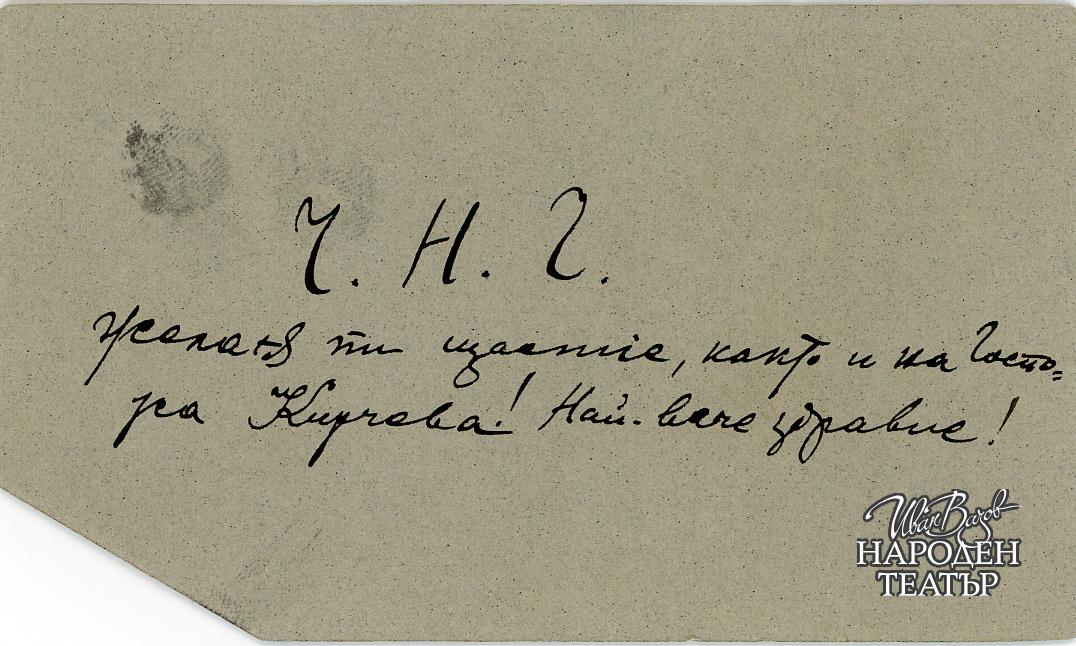 Ч. Н. Г.
Желаня ти щастие, както и на Госпо=
жа Кирчева! Най-вече здравие!
Иван Вазов
НАРОДЕН
ТЕАТЪР